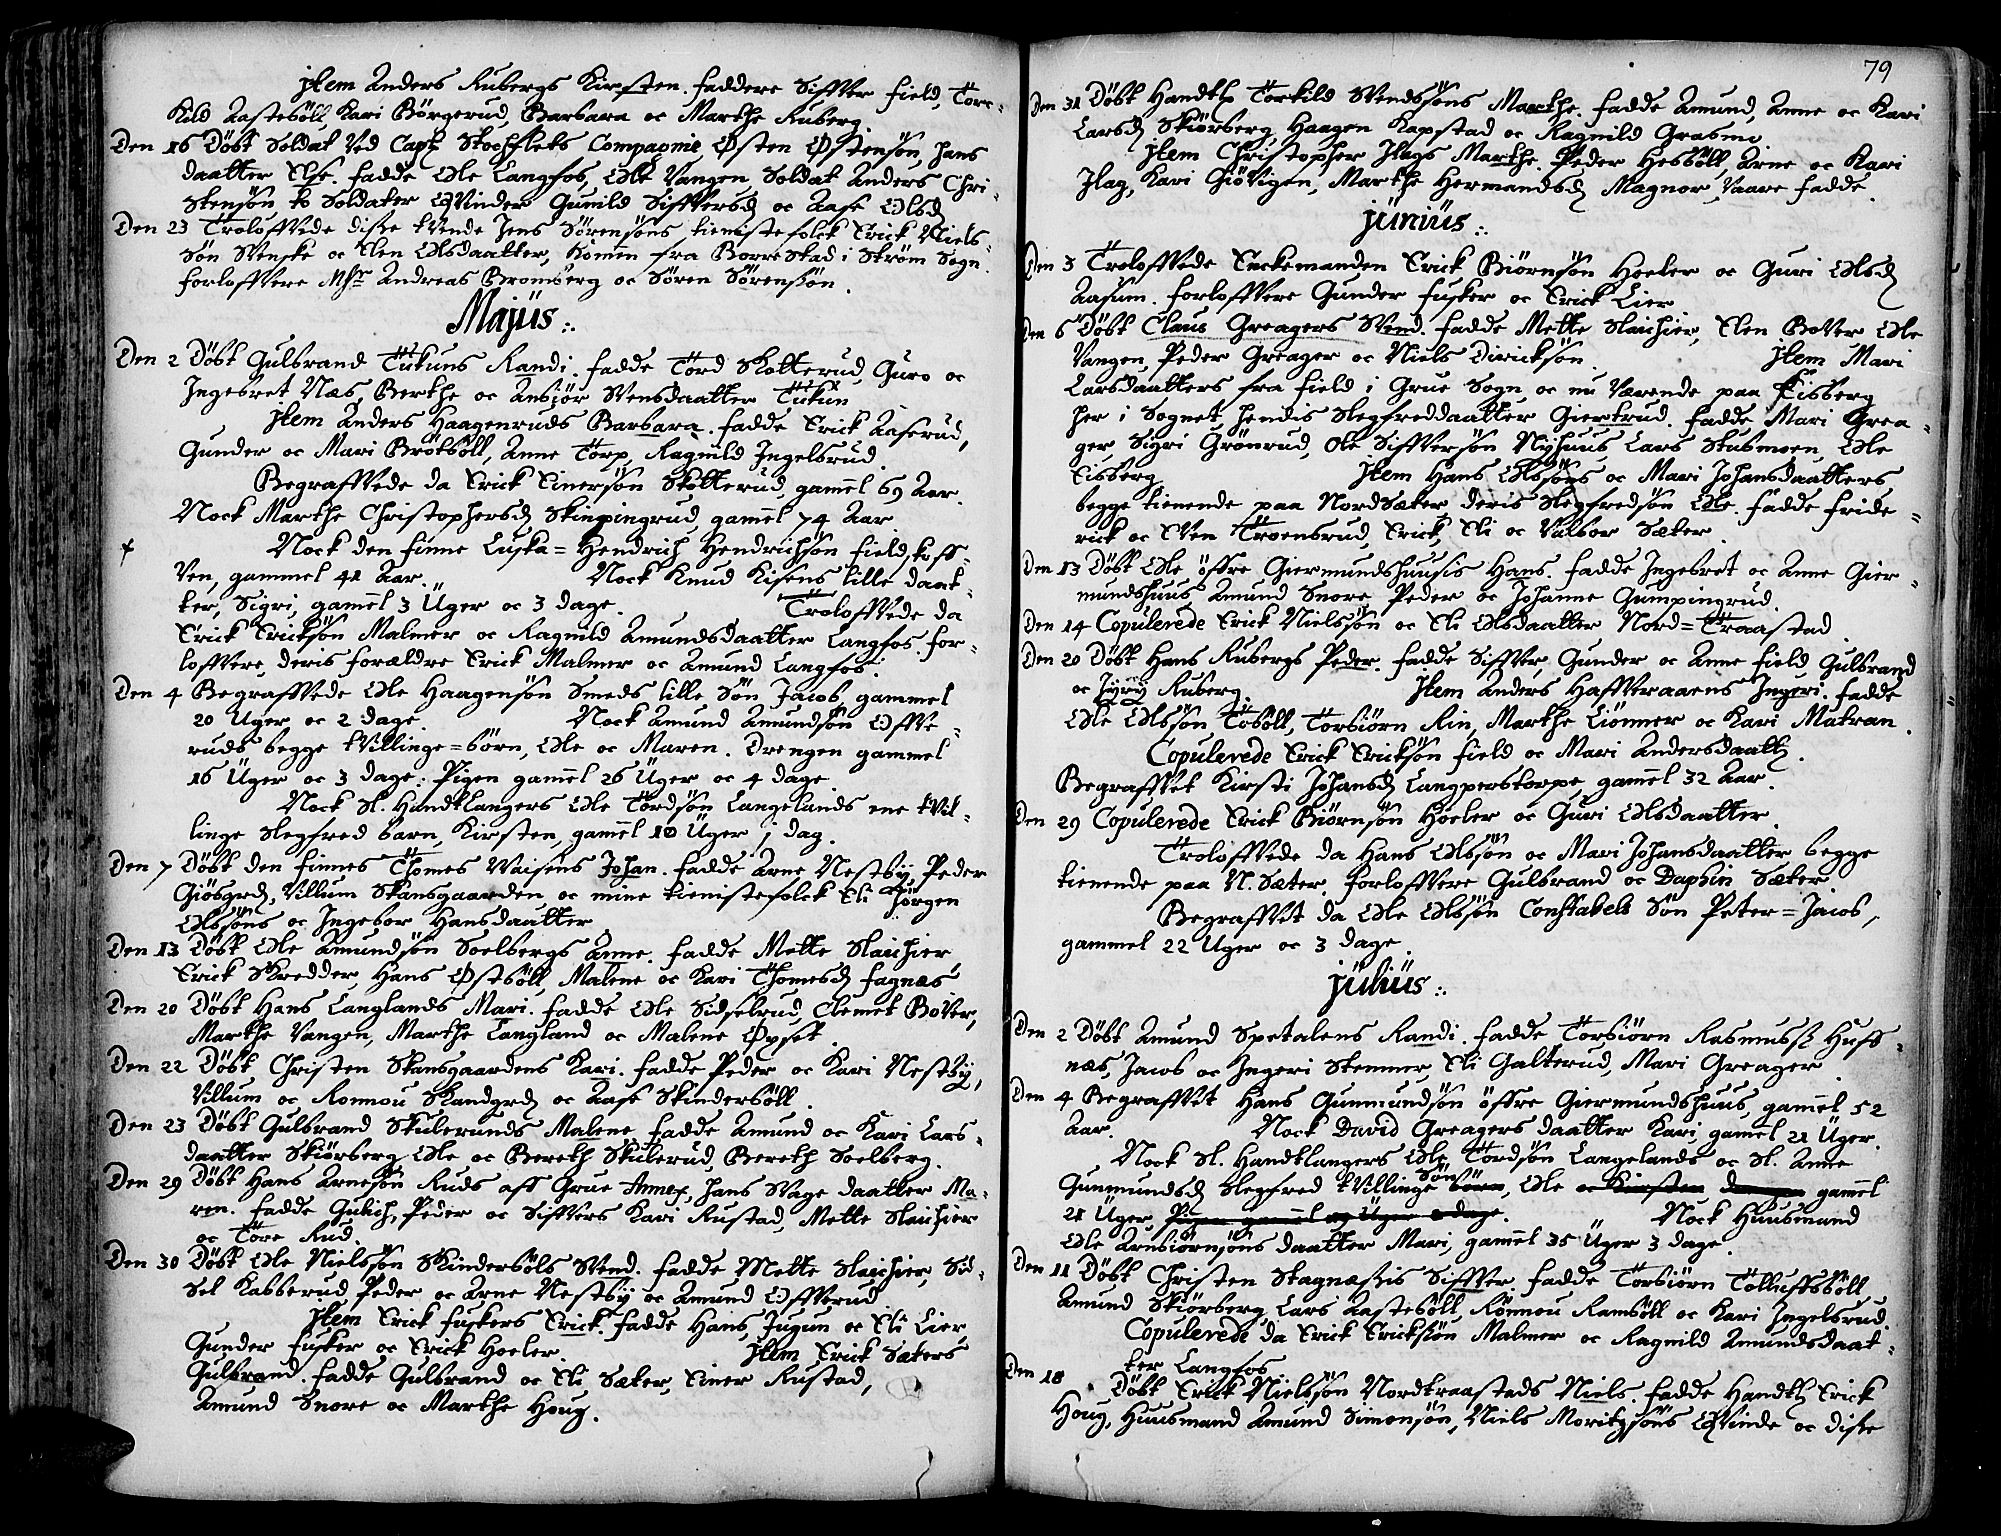 Item Anders Rubergs Kirsten. Faddere Siffver Field, Tore-
Kild Aastebøll, Kari Børgerud, Barbara oc Marthe Ruberg.
Den 16 Døbt Soldat Ved Capt Stochflets Compagnie Østen Østensøn, hans
daatter Else. Fadde Ole Langfos, Ole Vangen, Soldat Anders Chri-
stensøn to Soldater Qvinder Gunild Siffversd oc Aase Olsd
Den 23 Troloffvede disse tvende Jens Sørensøns tienistefolck Erick Niels-
søn Svenske oc Elen Olsdaatter, komen fra Borrestad i Strøm Sogn.
Forloffvere Mhr Andreas Bromberg oc Søren Sørensøn.
Majus:.
Den 2 Døbt Gulbrand Tukuns Randi. Fadde Tord Skotterud, Guro oc
Ingebret Næs, Berthe oc Ansiør Svensdaatter Tukun
Item Anders Haagenruds Barbara. Fadde Erick Aaserud,
Gunder oc Mari Brøtbøll, Anne Torp, Ragnild Ingelsrud.
Begraffvede da Erick Einersøn Skotterud, gamel 69 Aar.
Nock Marthe Christophersd Skinpingrud, gamel 74 Aar.
Nock den Finne Luska= Hendrich Hendrichsøn Field,
ven, gammel 41 Aar. Nock Knud Kisens lille daat-
ter, Sigri, gamel 3 Uger oc 3 dage. Troloffvede da
Erick Ericksøn Malmer oc Ragnild Amundsdaatter Langfos. For-
loffvere, deris forældre Erick Malmer oc Amund Langfos.
Den 4 Begraffvede Ole Haagensøn Smeds lille Søn Jacob, gammel
20 Uger oc 2 dage. Nock Amund Amundsøn Offve-
ruds begge tvillinge=børn, Ole oc Maren. Drengen gammel
16 Uger oc 3 dage. Pigen gamel 26 Uger oc 4 dage.
Nock Sl. Handtlangers Ole Tordsøn Langelands ene tvil-
linge slegfred barn, Kirsten, gamel 10 Uger 1 dag.
Den 7 Døbt den Finnes Thomes Vaisens Johan. Fadde Arne Nestby, Peder
Giøsgrd, Villum Skansgaarden oc mine tienistefolck Eli Jørgen
Olssøns oc Ingebor Hansdaatter
Den 13 Døbt Ole Amundsøn Soelbergs Anne. Fadde Mette Slaichier,
Erick Skredder, Hans Østbøll, Malene oc Kari Thomesd Fagnæs
Den 20 Døbt Hans Langlands Mari. Fadde Ole Sidselrud, Clemet Bover,
Marthe Vangen, Marthe Langland oc Malene Opset.
Den 22 Døbt Christen Skansgaardens Kari. Fadde Peder oc Kari Nestby,
Villum oc Ronnou Skandgrd oc Aase Skinderbøll.
Den 23 Døbt Gulbrand Skulerunds Malene. Fadde Amund oc Kari Lars-
daatter Skiørberg, Ole oc Bereth Skulerud, Bereth Soelberg.
Den 29 Døbt Hans Arnesøn Ruds aff Grue Annex, hans svage daatter Ma-
ren. Fadde Gulich, Peder oc Siffvers Kari Rustad, Mette Slaichier
oc Tore Rud.
Den 30 Døbt Ole Nielssøn Skinderbøls Svend. Fadde Mette Slaichier, Sid-
sel Kabberud, Peder oc Arne Nestby oc Amund Offverud
Item Erick Fuskers Erick. Fadde Hans Jugun oc Eli Lier,
Gunder Fusker oc Erick Hoeler. Item Erick Sæters
Gulbrand. Fadde Gulbrand oc Eli Sæter, Einer Rustad,
Amund Snore oc Marthe Houg.
79
Den 31 Døbt Handtl Torkild Svendssøns Marthe. Fadde Amund, Anne oc Kari
Larsd Skiørberg, Haagen Kapstad oc Ragnild Grasmo
Item Christopher Ilags Marthe. Peder Hesbøll, Arne oc Kari
Ilag, Kari Giøvigen, Marthe Hermandsd Magnor, vaare Fadde.
Junius:.
Den 3 Troloffvede Enckemanden Erick Biørnsøn Hoeler oc Guri Olsd
Aasum. Forloffvere Gunder Fusker oc Erick Lier
Den 6 Døbt Claus Greagers Svend. Fadde Mette Slaichier, Elen Bover, Ole
Vangen, Peder Greager oc Niels Diricksøn. Item Mari
Larsdaatters fra Field i Grue Sogn, oc nu værende paa Eisberg
her i Sognet, hendis slegfreddaatter Giertrud. Fadde Mari Grea-
ger, Sigri Grønrud, Ole Siffversøn Nyhuus, Lars Stubmoen, Ole
Eisberg. Item Hans Olssøns oc Mari Johansdaatters
begge tienende paa Nordsæter, deris slegfredsøn Ole. Fadde Fride-
rick oc Even Troensrud, Erick, Eli oc Valbor Sæter.
Den 13 Døbt Ole Øffre Giermundshuusis Hans. Fadde Ingebret oc Anne Gier-
mundshuus, Amund Snore, Peder oc Johanne Gumpingrud.
Den 14 Copulerede Erick Nielssøn oc Eli Olsdaatter Nord=Traastad
Den 20 Døbt Hans Rubergs Peder. Fadde Siffver, Gunder oc Anne Field, Gulbrand
oc Jyry Ruberg. Item Anders Haffveraaens Ingeri. Fadde
Ole Olssøn Tobøll, Torbiørn Rin, Marthe Liønner oc Kari Matran.
Copulerede Erick Ericksøn Field oc Mari Andersdaatt.
Begraffvet Kirsti Johansd Langperstorpe, gamel 32 Aar.
Den 29 Copulerede Erick Biørnsøn Hoeler oc Guri Olsdaatter.
Troloffvede da Hans Olssøn oc Mari Johansdaatter begge
tienende paa N. Sæter, Forloffvere Gulbrand oc Daphin Sæter.
Begraffvet da Ole Olssøn Constabels Søn Peter=Jacob,
gammel 22 Uger oc 3 dage.
Julius:.
Den 2 Døbt Amund Spetalens Randi. Fadde Torbiørn Rasmuss Huss-
næs, Jacob oc Ingeri Stemmer, Eli Galterud, Mari Greager.
Den 4 Begraffvet Hans Gunmundsøn øffre Giermundshuus, gamel 52
Aar. Nock David Greagers daatter Kari, gamel 21 Uger.
Nock Sl. Handtlangers Ole Tordsøn Langelands oc Sl. Anne
Gunmundsd slegfred tvillinge Søn børn, Ole oc Kirsten gamel
21 Uger, Pigen gamel Uger dage. Nock Huusmand
Ole Arnbiørnsøns daatter Mari, gamel 35 Uger 3 dage.
Den 11 Døbt Christen Stagnæssis Siffver. Fadde Torbiørn Tolluffsbøll
Amund Skiørberg, Lars Aastebøll, Rønnou Ramsøll oc Kari Ingelsrud.
Copulerede da Erick Ericksøn Malmer oc Ragnild Amundsdaat-
ter Langfos
Den 18 Døbt Erick Nielssøn Nordtraastads Niels. Fadde Handtl Erick
Houg, Huusmand Amund Simensøn, Niels Moritzsøns Qvinde oc disse